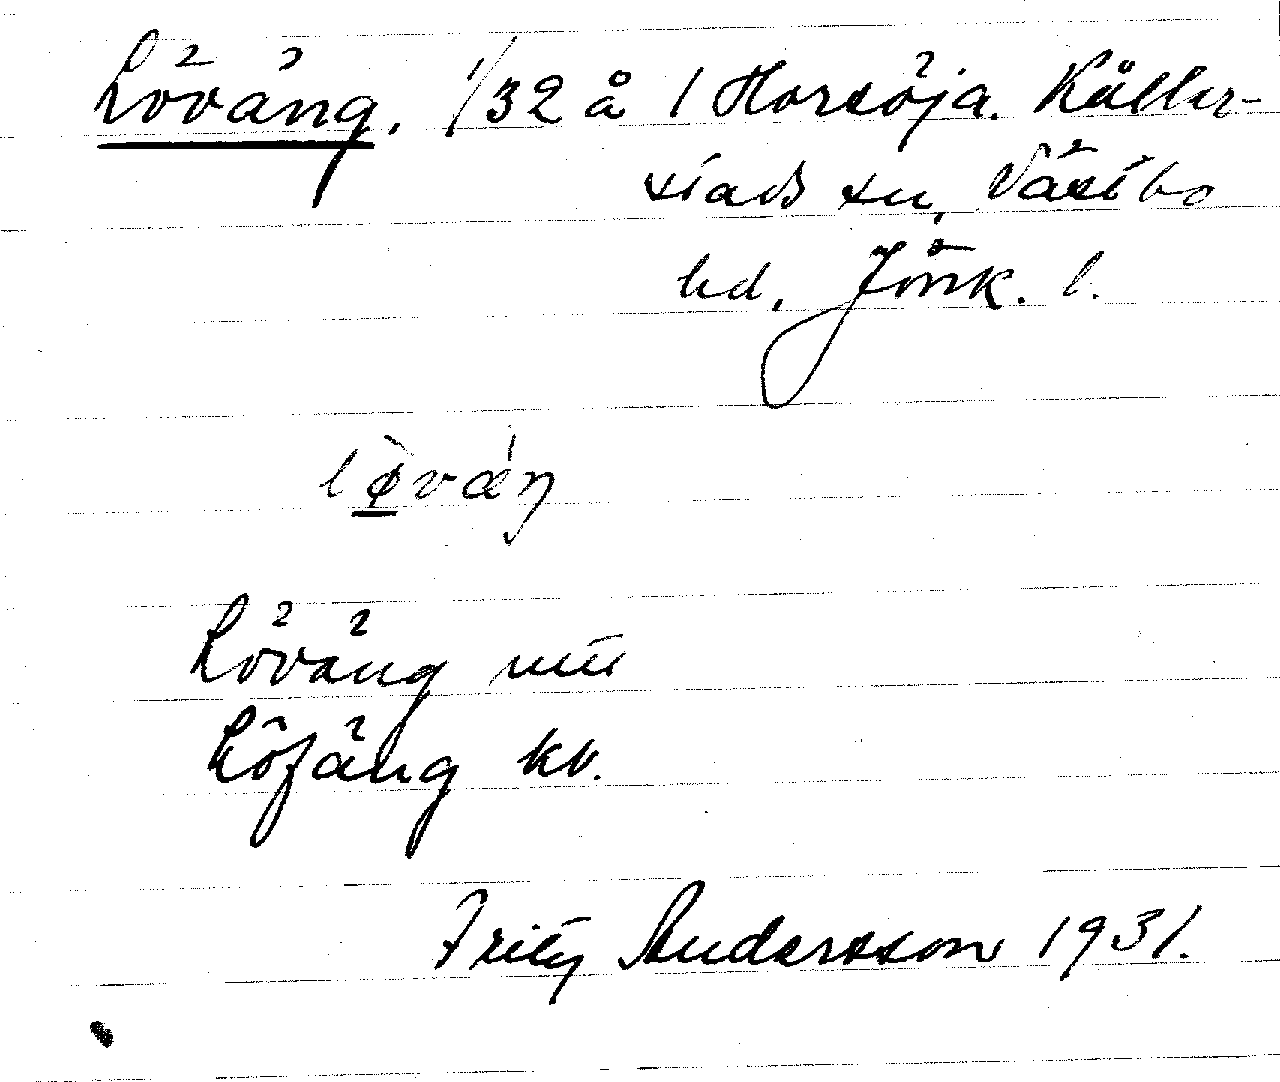 Löväng, 1/32 å 1 Horsöja. Käller-
stads sn, Västbo
hd, Jönk. l.
lø̀váŋ
Löväng mtl
Löfäng kb.
Fritz Andersson 1931.